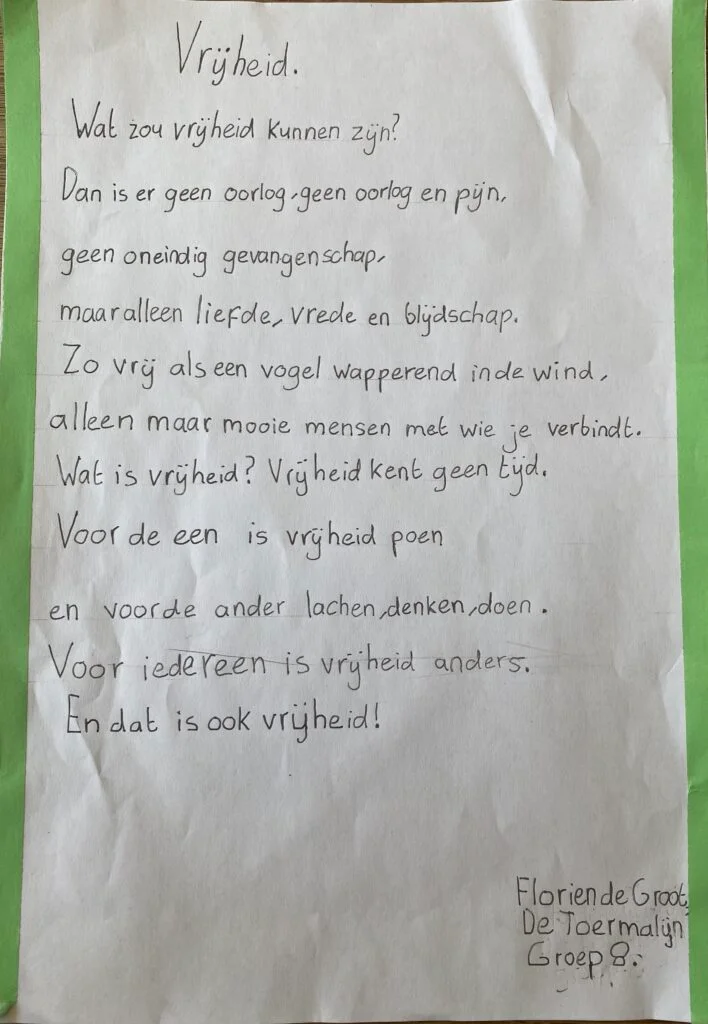 Vrijheid.
Wat zou vrijheid kunnen zijn?
Dan is er geen oorlog, geen oorlog en pijn,
geen oneindig gevangenschap,
maar alleen liefde, vrede en blijdschap.
Zo vrij als een vogel wapperend in de wind,
alleen maar mooie mensen met wie je verbindt.
Wat is vrijheid? Vrijheid kent geen tijd.
Voor de een is vrijheid poen
en voor de ander lachen, denken, doen.
Voor iedereen is vrijheid anders.
En dat is ook vrijheid!
Florien de Groot,
De Toermalijn
Groep 8.